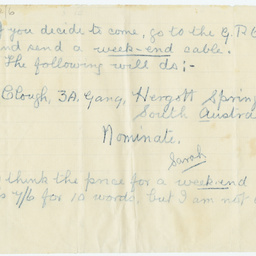 f you decide to come, go to the G.P.O
and send a week-end cable.
The following will do:-
Clough, 3A. Gang, Hergott Spring
South Austra
Nominate.
Sarah
think the price for a week-end
7/6 for 10 words, but I am not